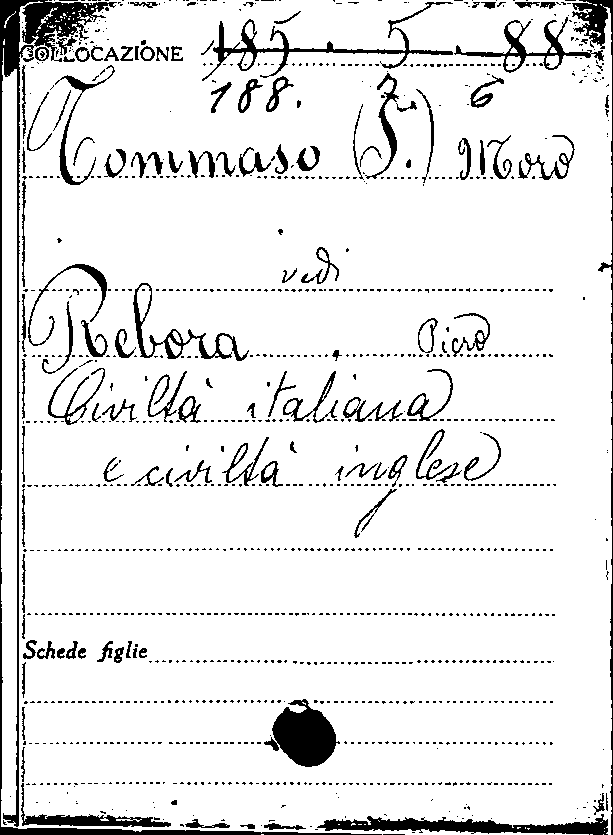 COLLOCAZIONE 185 . 5 . 88
188. 2 6
Tommaso (S.) Moro
vedi
Rebora . Piero
Civiltà italiana
e civiltà inglese
Schede figlie